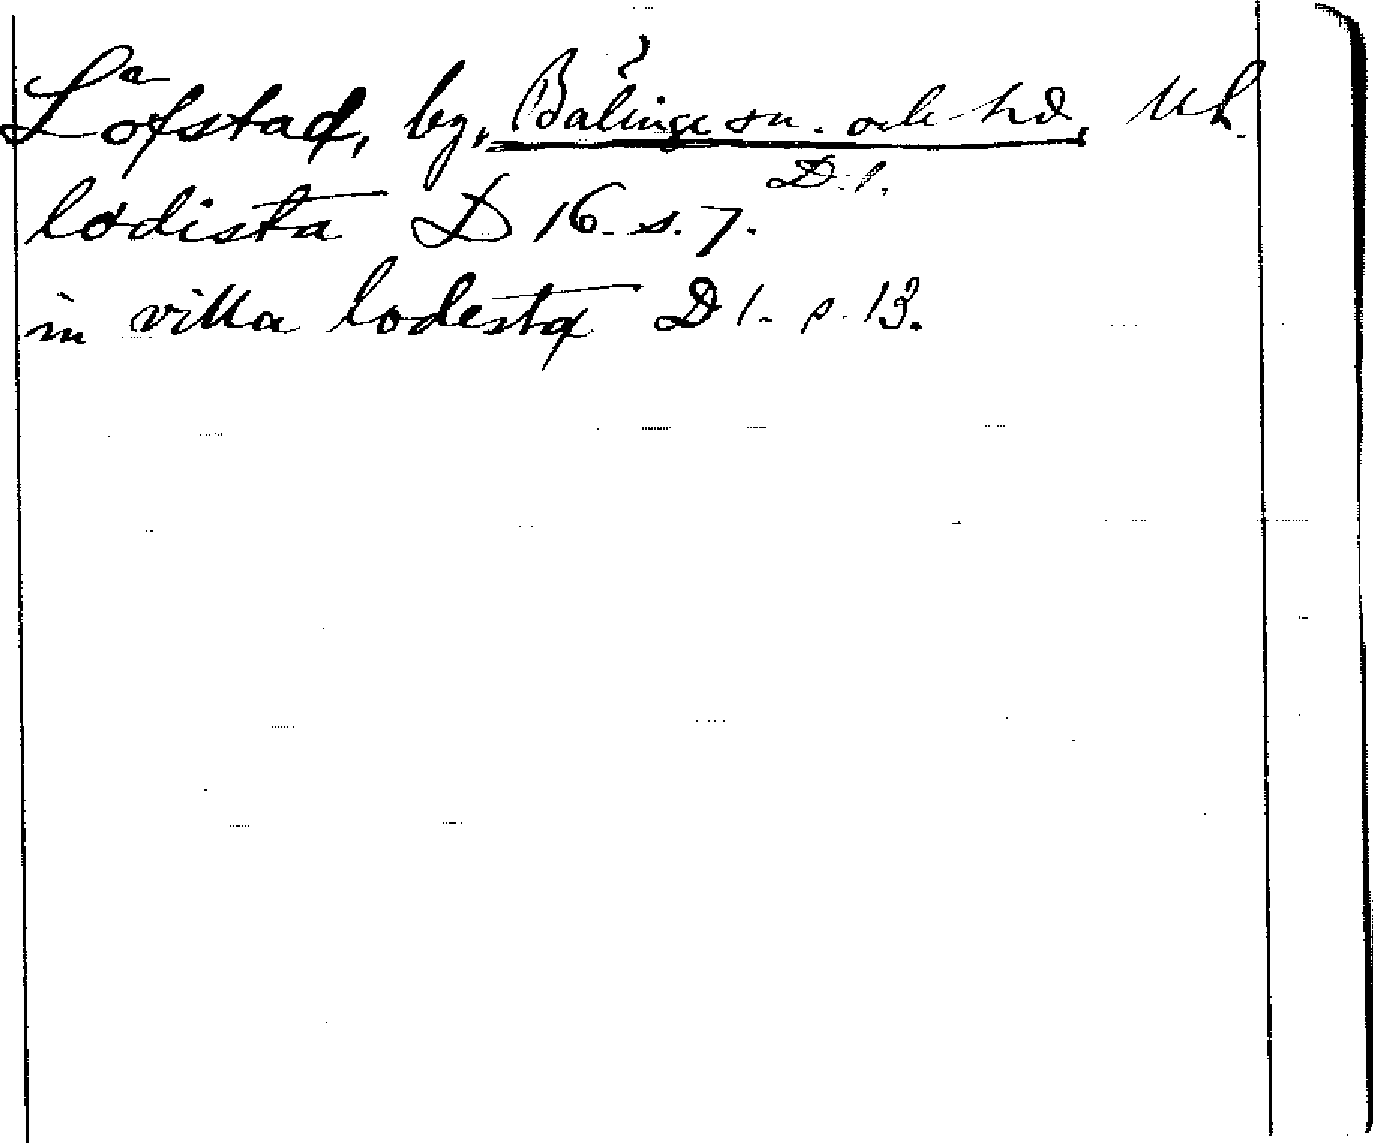 Löfstad, by, Bälinge sn. och hd, Upl.
D. 1.
lodista D 16. s. 7.
in villa lodesta D 1. p. 13.